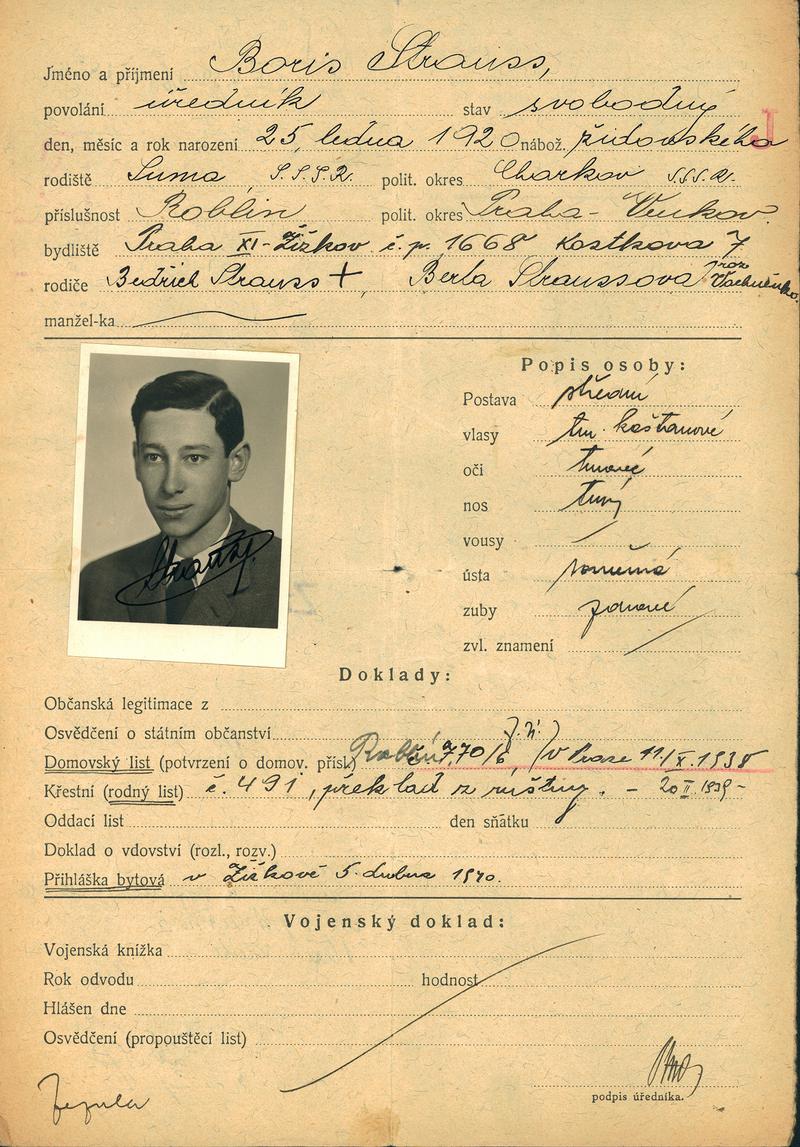 Jméno a příjmení Boris Strauss,
povolání úředník stav svobodný
J
den, měsíc a rok narození 25. ledna 1920 nábož. židovského
rodiště Suma, S.S.S.R. polit. okres Charkov S.S.R.
příslušnost Roblín polit. okres Praha - Venkov.
bydliště Praha XI-Žižkov č.p. 1668 Kostkova 7
rodiče Bedřich Strauss +, Berta Straussová roz
manžel-ka
Popis osoby:
Postava střední
vlasy tm. kaštanové
oči tmavé
nos
vousy
ústa souměrná
zuby zdravé
zvl. znamení
Strauss
Doklady:
Občanská legitimace z
Osvědčení o státním občanství
Domovský list (potvrzení o domov. přísl.) Roblín 770/6 v Praze 11/X. 1938
Křestní (rodný list) č. 491, překlad z ruštiny. - 20 II. 1939 -
Oddací list den sňatku
Doklad o vdovství (rozl., rozv.)
Přihláška bytová v Žižkově 5. dubna 1940.
Vojenský doklad:
Vojenská knížka
Rok odvodu hodnost
Hlášen dne
Osvědčení (propouštěcí list)
podpis úředníka.